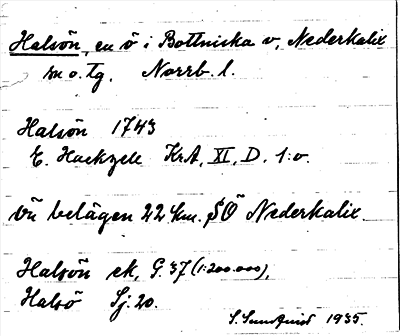 Halsön, en ö i Bottniska v, Nederkalix
sn o. tg. Norrb. l.
Halsön 1743
E. Hackzell KrA, XI, D. 1:v.
Ön belägen 22 km. SÖ Nederkalix.
Halsön ek, G. 37 (1:200.000),
Halsö Sj: 20.
S. Sundquist 1935.